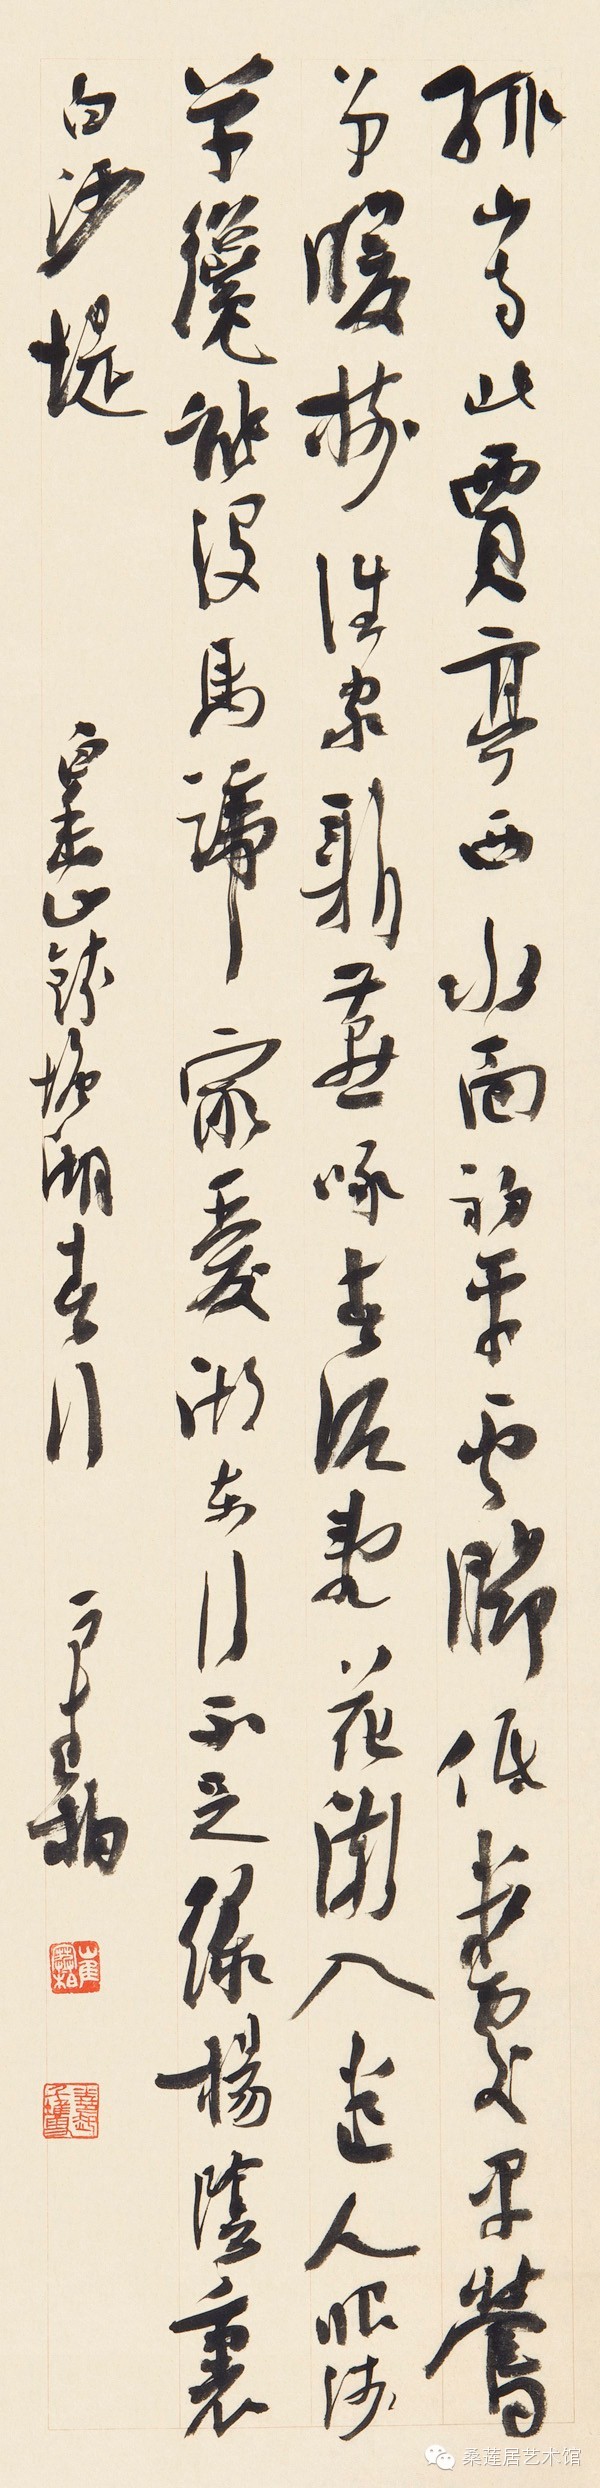 孤山寺北賈亭西水面初平雲腳低幾處早鶯
爭暖樹誰家新燕啄春泥亂花漸入迷人眼淺
草纔能沒馬蹄最愛湖東行不足綠楊陰裏
白沙堤
白香山錢塘湖春行
崔寒柏
桑莲居艺术馆